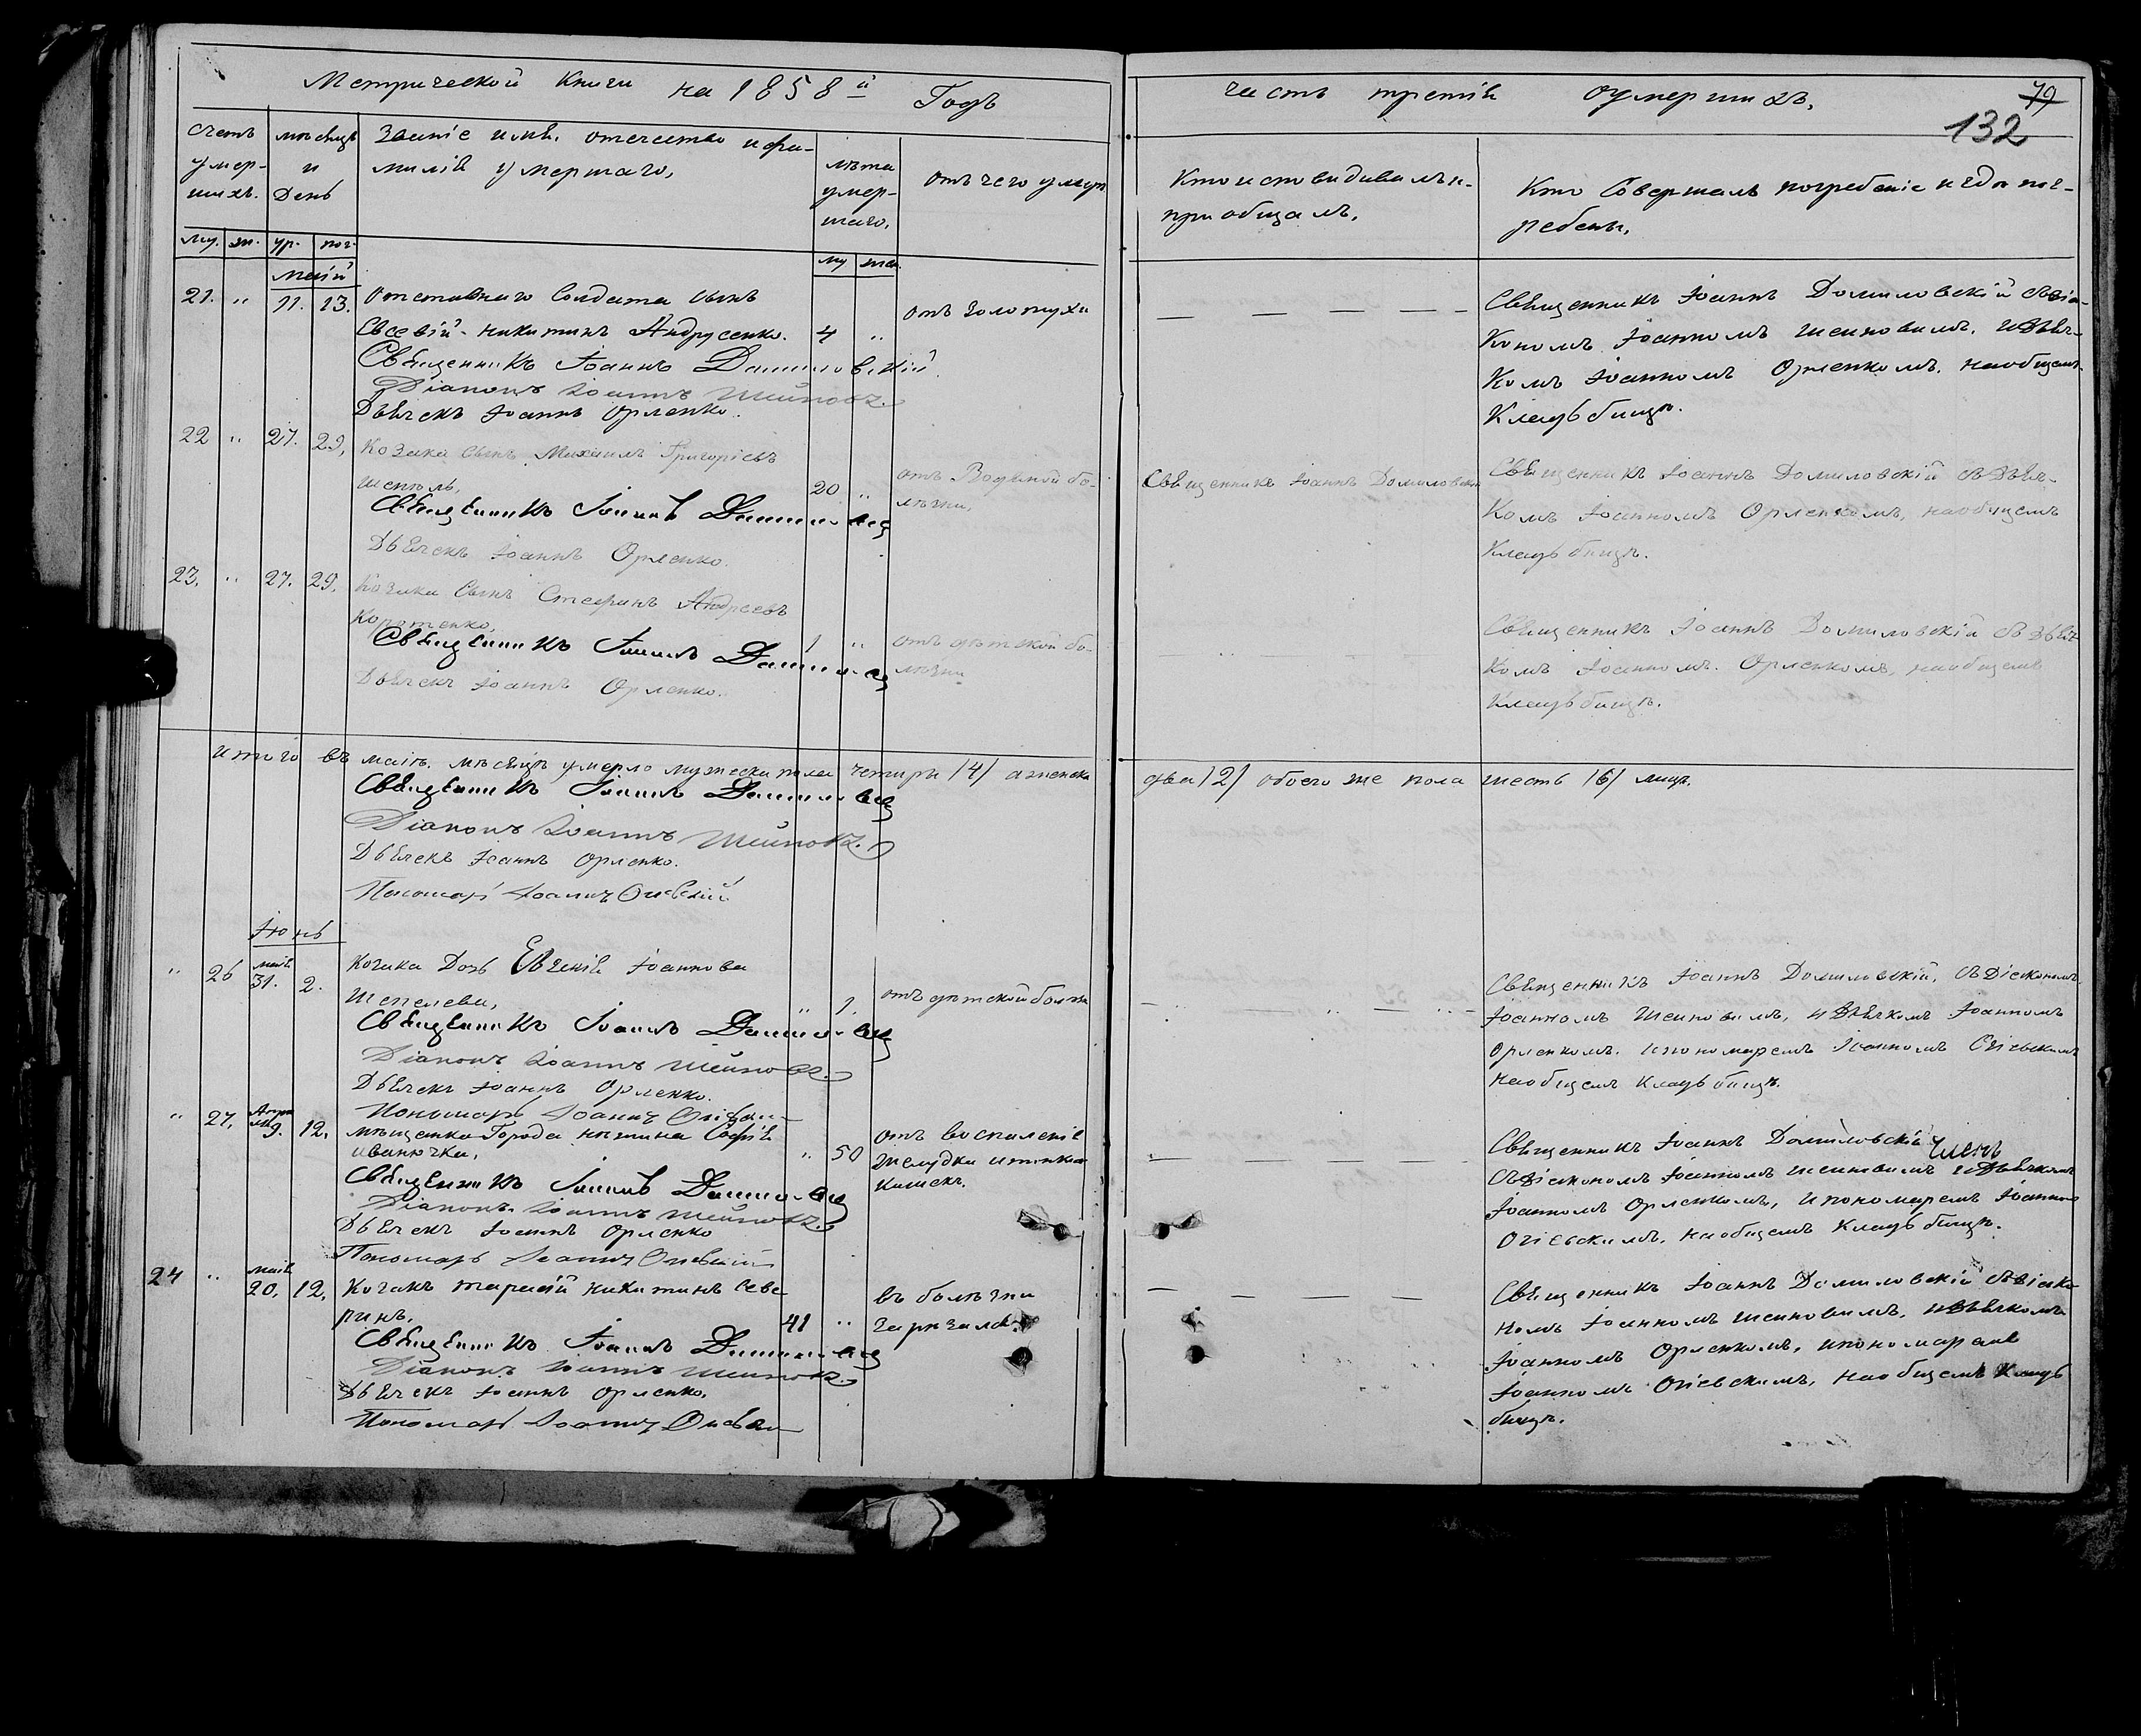 Метрической Книги на 1858й Годъ
Счетъ умер-шихъ.
мѣсяцъ и День
Званіе имя. отечество и фа-
милія умершаго,
лѣта
умер-
шаго,
отъ чего умеръ
му. ж. ур. пог.
му жен.
маій
21. " 11. 13. Отставнаго Солдата сынъ
Евсевій Никитинъ Андрусенко. 4 " отъ золотухи
Священникъ Іоаннъ Домиловскій
Діаконъ Іоаннъ Шейновъ.
Дьячекъ Іоаннъ Орленко.
22 " 27. 29, Козака сынъ Михаилъ Григоріевъ
20 " отъ Водяной бо-
лѣзни,
Священникъ Іоаннъ
Дьячекъ Іоаннъ Орленко.
23, " 27. 29. Козака Сынъ Стефанъ Андреевъ
Коротенко,
1 " отъ дѣтской бо-
лѣзни
Священникъ Іоаннъ
Дьячекъ Іоаннъ Орленко.
итого въ маіѣ мѣсяцѣ умерло мужеска пола четыри /4/ а женска
Священникъ Іоаннъ
Діаконъ Іоаннъ Шейновъ.
Дьячекъ Іоаннъ Орленко.
Пономарь Іоаннъ Огіевскій
Іюнь
" 26 маія 31. 2. Козака Дочь Евгенія Іоаннова
Шепелева, " 1. отъ дѣтской болѣзни
Священникъ Іоаннъ
Діаконъ Іоаннъ Шейновъ.
Дьячекъ Іоаннъ Орленко.
Пономарь Іоаннъ
" 27, 9. 12. мѣщанка Города Нѣжина Софія
Иванючка, " 50 отъ воспаленія
желудка и тонкихъ
кишекъ.
Священникъ Іоаннъ
Діаконъ Іоаннъ Шейновъ.
Дьячекъ Іоаннъ Орленко
Пономарь Іоаннъ Огіевскій
24 " маія 20, 12, Козакъ Тарасій Никитинъ Севе-
ринъ, 41 " въ болѣзни
зарѣзался
Священникъ Іоаннъ
Діаконъ Іоаннъ Шейновъ.
Дьячекъ Іоаннъ Орленко,
Пономарь Іоаннъ
Часть третія оумершихъ,
79
132
Кто исповѣдывалъ и-
пріобщалъ,
Кто Совершалъ погребеніе и гдѣ пог-
ребены,
Священникъ Іоаннъ Домиловскій съ Діа-
кономъ Іоанномъ Шейновымъ, и Дьяч-
комъ Іоанномъ Орленкомъ, на общемъ
Кладбищѣ.
Священникъ Іоаннъ Домиловскій
Священникъ Іоаннъ Домиловскій съ Дьяч-
комъ Іоанномъ Орленкомъ, на общемъ
Кладбищѣ.
Священникъ Іоаннъ Домиловскій съ Дьяч-
комъ Іоанномъ Орленкомъ, на общемъ
Кладбищѣ.
два /2/ обоего же пола шесть /6/ лицъ.
Священникъ Іоаннъ Домиловскій, съ Діакономъ
Іоанномъ Шейновымъ, и Дьячкомъ Іоанномъ
Орленкомъ, и пономаремъ Іоанномъ Огіевскимъ
на общемъ Кладбищѣ.
Священникъ Іоаннъ Домиловскій
Съ Діакономъ Іоанномъ Шейновымъ и Дьячкомъ
Іоанномъ Орленкомъ, и пономаремъ Іоанномъ
Огіевскимъ, на общемъ Кладбищѣ.
Священникъ Іоаннъ Домиловскій съ Діако-
номъ Іоанномъ Шейновымъ, и Дьячкомъ
Іоанномъ Орленкомъ, и пономаремъ
Іоанномъ Огіевскимъ, на общемъ Клад-
бищѣ.